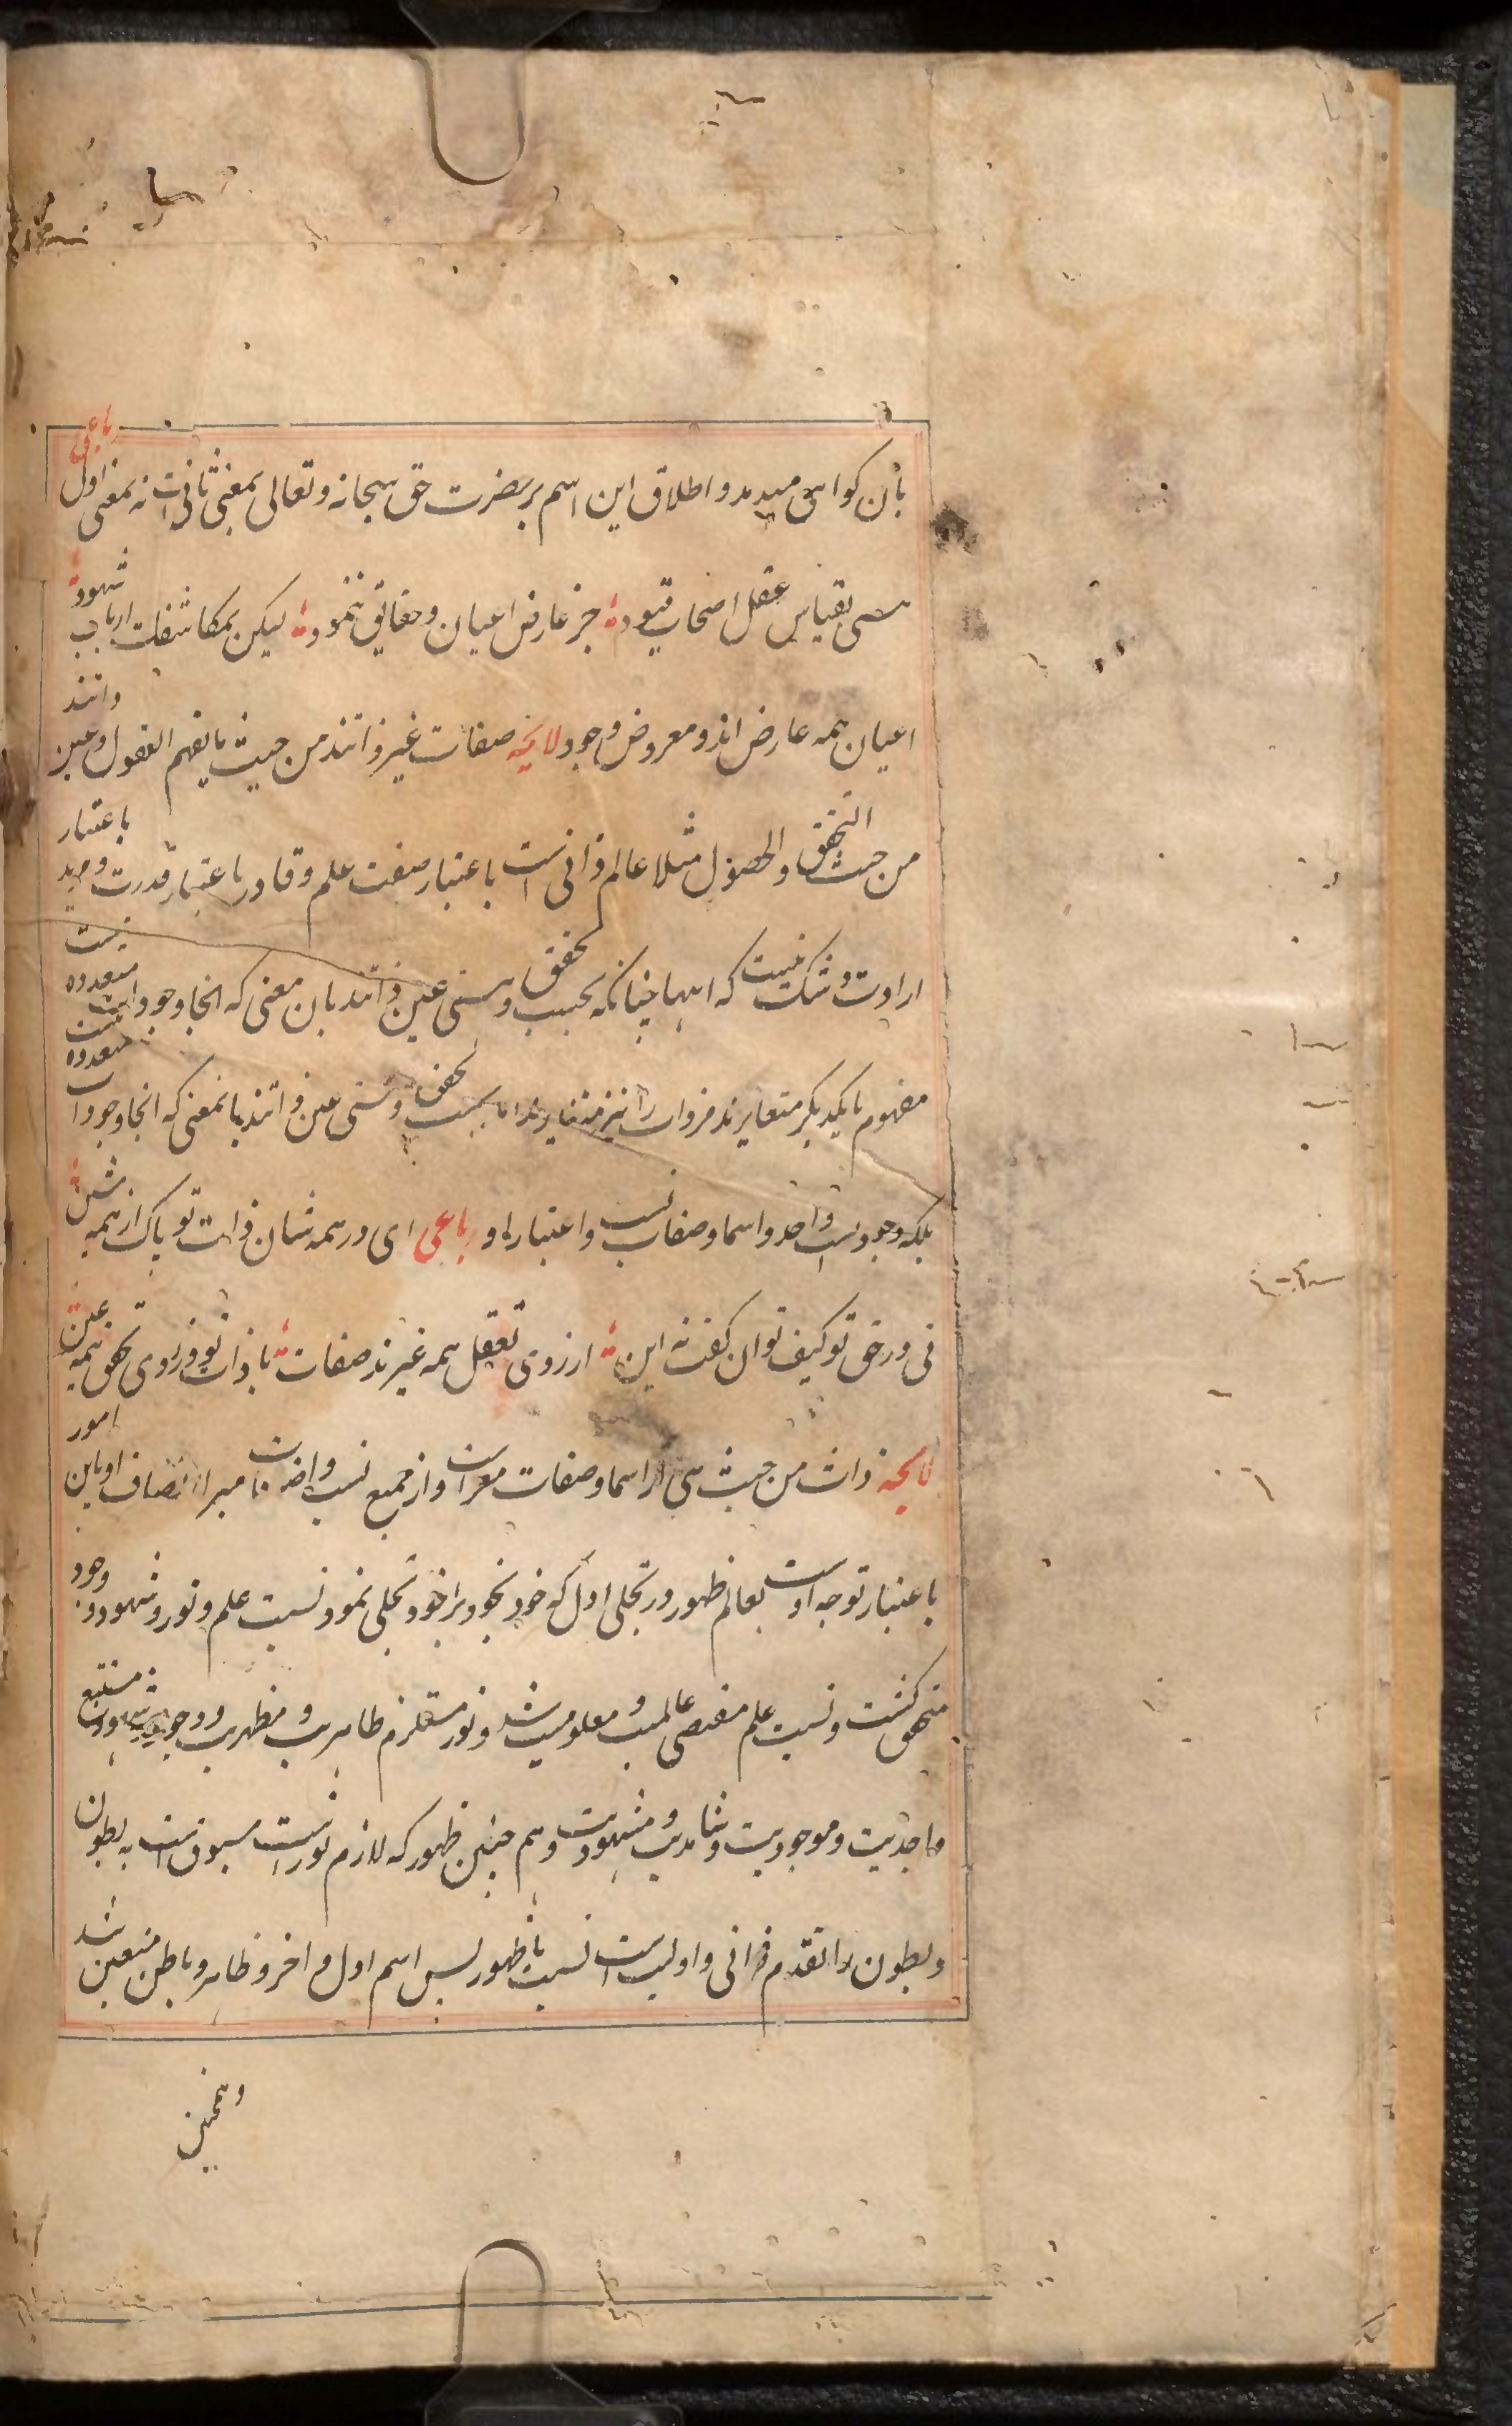 بآن کواهی میدهد و اطلاق این اسم بر حضرت حق سبحانه و تعالی بمعنی ثانی است نه بمعنی اول رباعی
هستی بقیاس عقل اصحاب قیود جز عارض اعیان و حقایق ننمود لیکن بمکاشفات ارباب شهود
اعیان همه عارض اند و معروض وجود لایحه صفات غیر ذاتند من حیث ما یفهم العقول و عین ذاتند
من حیث التحقق والحصول مثلا عالم ذاتی است باعتبار صفت علم و قادر باعتبار قدرت و مرید باعتبار
ارادت و شک نیست که اینها چنانکه بحسب تحقق و هستی عین ذاتند بان معنی که انجا وجودات متعدده نیست
مفهوم با یکدیکر متغایرند مر ذات را نیز متغایرند اما بحسب تحقق و هستی عین ذاتند بانمعنی که انجا وجودات متعدده نیست
بلکه وجودیست واحد و اسما و صفات نسب و اعتبارات او رباعی ای در همه شان ذات تو پاک از همه شین
نی در حق تو کیف توان کفت نه این از روی تعقل همه غیرند صفات با ذات تو و ز روی تحقق همه عین
لایحه ذات من حیث هی از اسما و صفات معراست و از جمیع نسب و اضافات مبرا اتصاف او باین امور
باعتبار توجه اوست بعالم ظهور در تجلی اول که خود بخود بر خود تجلی نمود نسبت علم و نور و شهود و وجود
متحقق کشت و نسبت علم مقتضی عالمیت و معلومیت شد و نور مستلزم ظاهریت و مظهریت و وجود و شهود مستتبع
واجدیت و موجودیت و شاهدیت و مشهودیت و هم چنین ظهور که لازم نور است مسبوق است به بطون
و بطون را تقدم ذاتی و اولیت است نسبت با ظهور پس اسم اول و اخر و ظاهر و باطن متعین شد
و همچنین